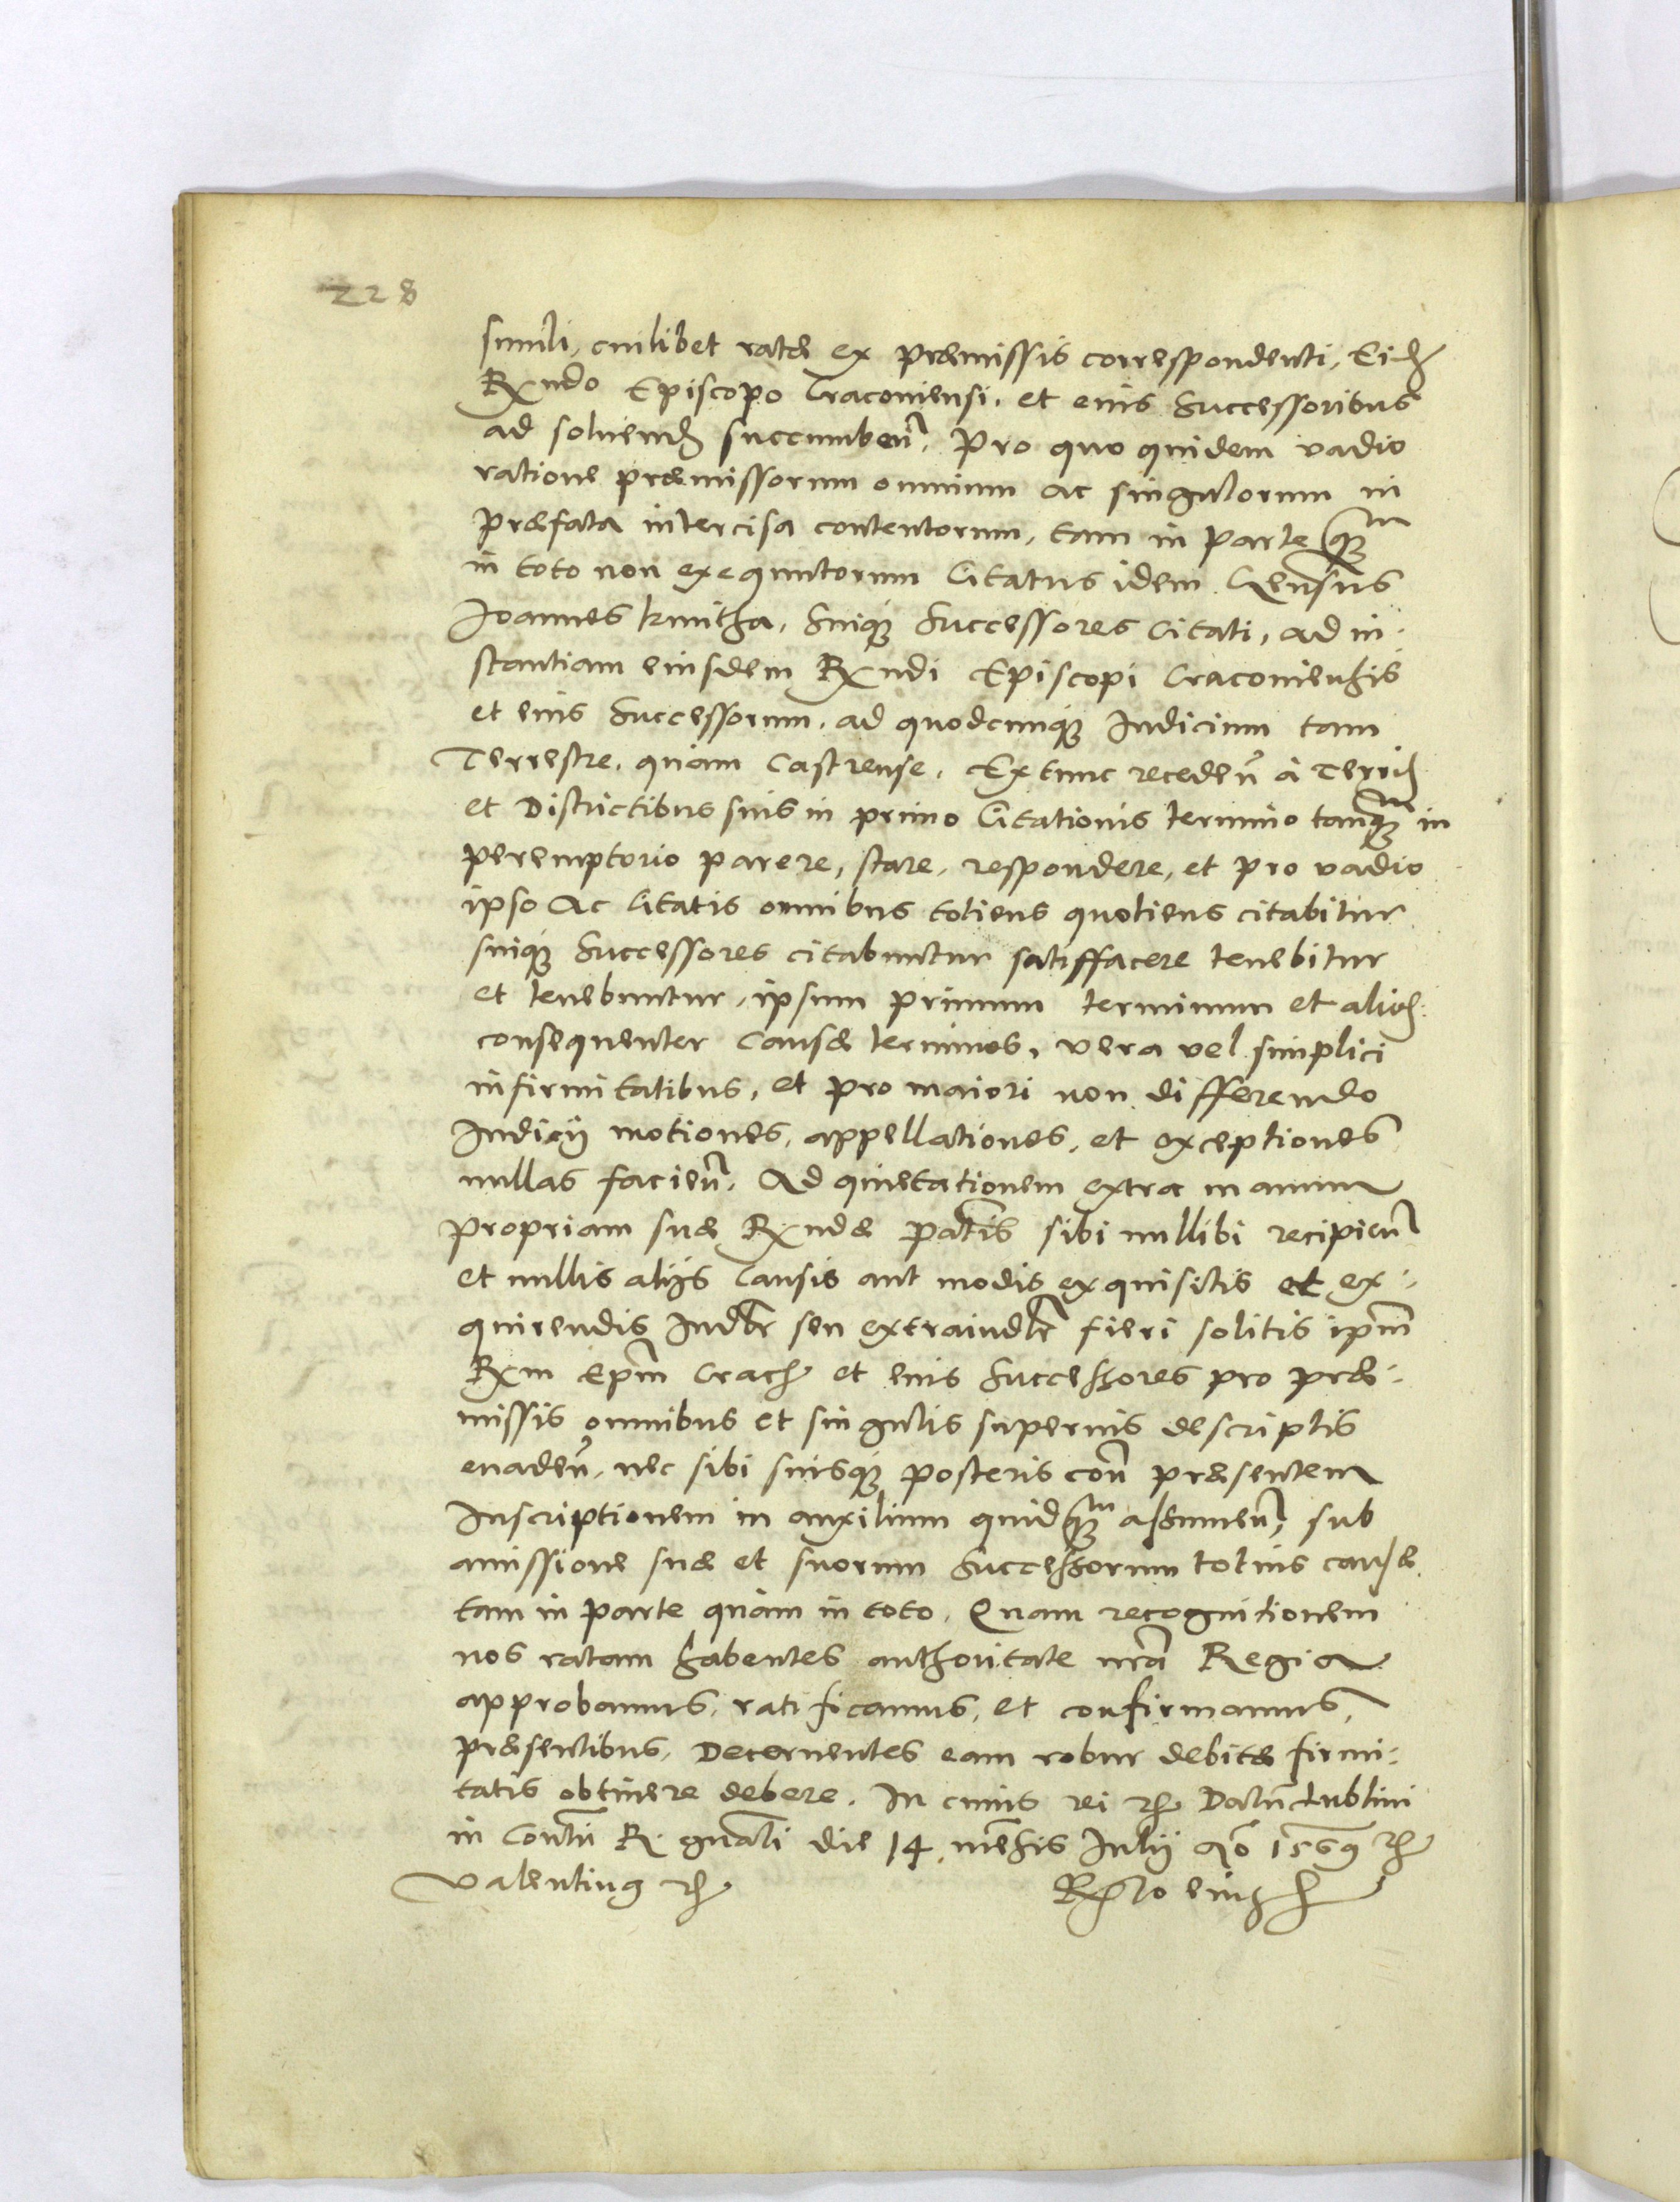 228
simili, cuilibet ratæ ex præmissis correspondenti, Eid
Rx̃ndo Episcopo Cracoviensi, et eius Successoribus
ad soluend succumbeñ. Pro quo quidem vadio
ratione præmissorum omnium ac singulorum in
præfata intercisa contentorum, tam in parte q̃
in toto non exequutorum Citatus idem Gensus
Joannes kmitha, Suiq; Successores Citati, ad in-
stantiam eiusdem Rx̃ndi Episcopi Cracoviensis
et eius Successorum, ad quodcunq; Iudicium tam
Terrestre, quàm Castrense, Extunc recedeñ à Terris
et Districtibus suis in primo Citationis termino tanq̃ in
peremptorio parere, stare, respondere, et pro vadio
ipso Ac Citatis omnibus totiens quotiens citabitur
suiq; Successores citabuntur satisffacere tenebitur
et tenebuntur, ipsum primum terminum et alios
consequenter Causæ terminos, vera vel simplici
infirmitatibus, et pro maiori non differendo
Iudicij motiones, appellationes, et exceptiones
nullas facieñ. Ad quietationem extra manum
propriam suæ Rx̃ndæ pat̃tis sibi nullibi recipieñ
et nullis alijs Causis aut modis exquisitis et ex-
quirendis Iud̃r seu extraiud̃r fieri solitis ip̃m
Rx̃m Ep̃m Crac et eius Successores pro præ-
missis omnibus et singulis superius descriptis
euadeñ, nec sibi suisq; posteris coñ præsentem
Inscriptionem in auxilium quidq̃ assumeñ, sub
amissione suæ et suorum Successorum totius causæ
tam in parte quàm in toto. Quam recognitionem
nos ratam habentes authoritate nr̃a Regia
approbamus, ratificamus, et confirmamus,
præsentibus, Decernentes eam robur debitæ firmi-
tatis obtinere debere. In cuius rei rc Datũ Lublini
in Conũti R. gñali die 14. mẽsis Iulij aõ 1569 rc
Valentinus rc